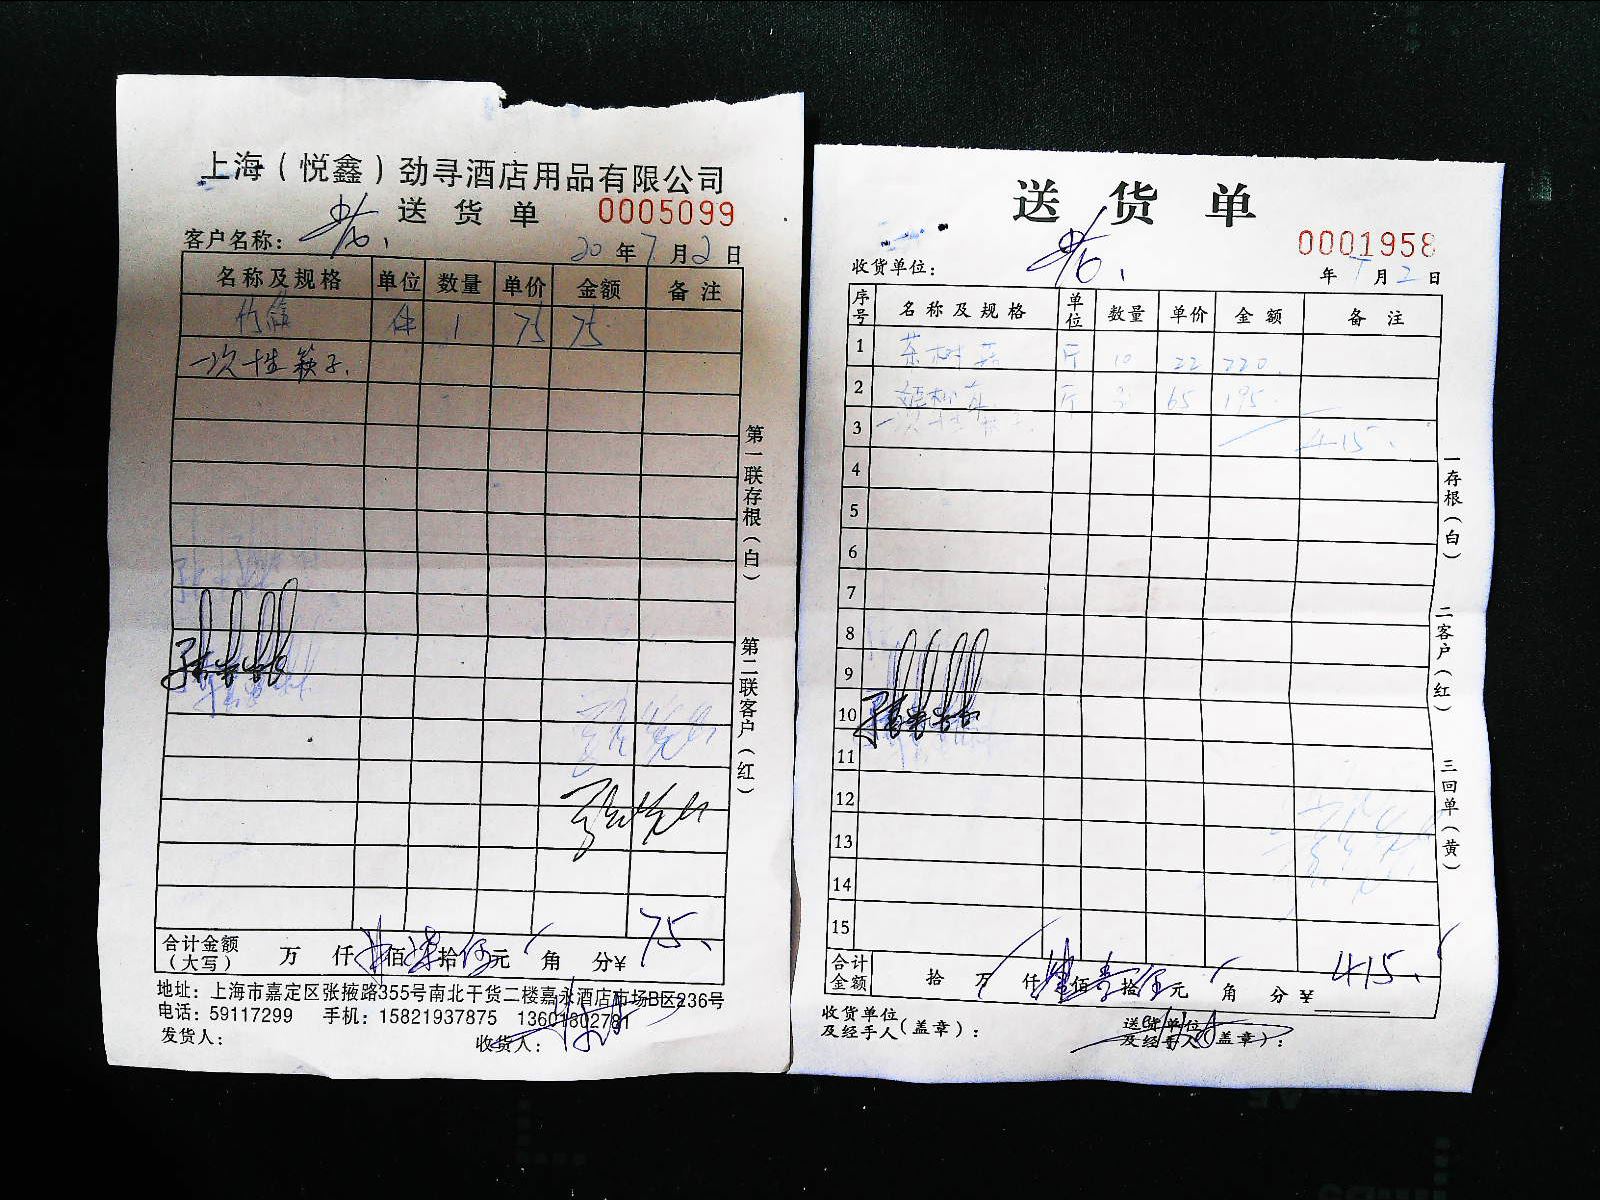 上海（悦鑫）劲寻酒店用品有限公司
送货单 0005099
客户名称：
20年7月2日
名称及规格 单位 数量 单价 金额 备注
件 1 75 75
一次性筷子.
第一联存根（白）
第二联客户（红）
75.
合计金额（大写） 万 仟 佰柒拾伍元 角 分¥
地址：上海市嘉定区张掖路355号南北干货二楼嘉永酒店市场B区236号
电话：59117299 手机：15821937875 13601802781
发货人： 收货人：
送货单
0001958
收货单位：
年7月2日
序号 名称及规格 单位 数量 单价 金额 备注
1 茶树菇 斤 10 22 220.
2 姬松茸 斤 3 65 195.
3 一次性筷子. 415.
4
5
6
7
8
9
10
11
12
13
14
15
一存根（白）
二客户（红）
三回单（黄）
合计金额 拾 万 仟肆佰壹拾伍元 角 分¥ 415.
收货单位及经手人（盖章）：
送货单位及经手人（盖章）：